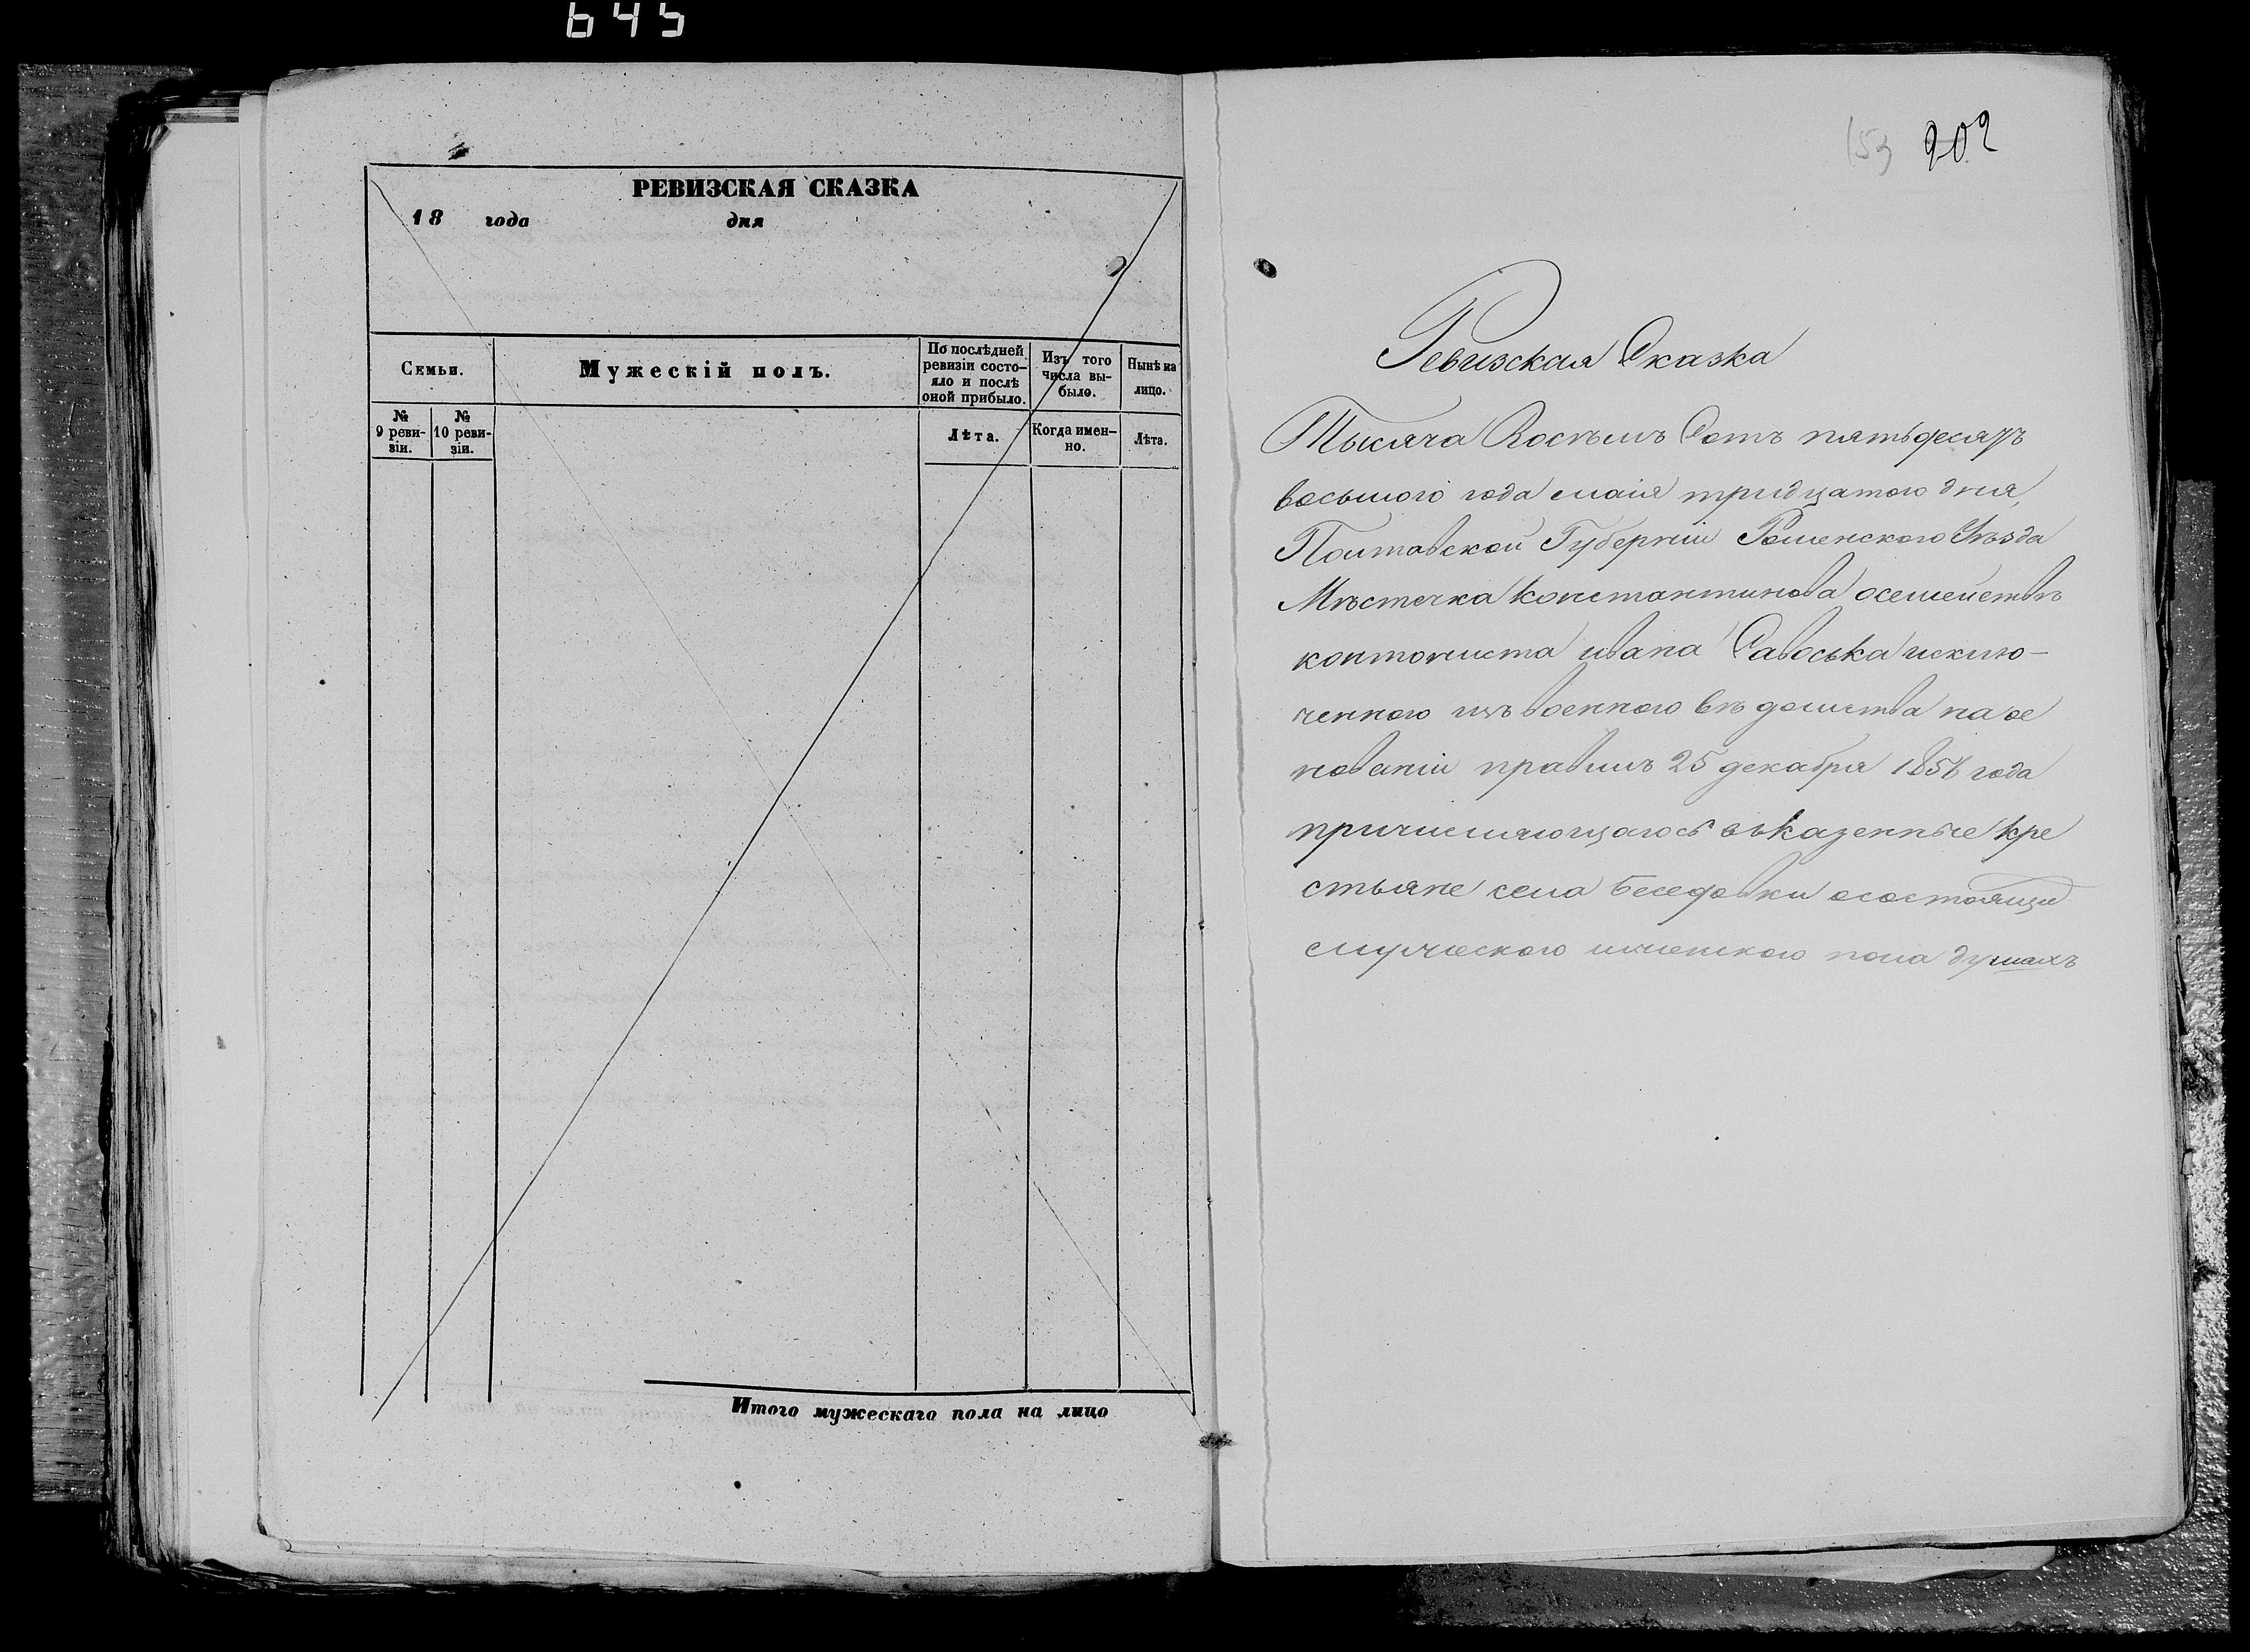 645
РЕВИЗСКАЯ СКАЗКА
18 года дня
Семьи.
Мужескій полъ.
По послѣдней ревизіи состо-
яло и послѣ
оной прибыло.
Изъ того
числа вы-
было.
Нынѣ на
лицо.
№
9 реви-
зіи.
№
10 реви-
зіи.
Лѣта.
Когда имен-
но.
Лѣта.
Итого мужескаго пола на лицо
153 202
Ревизская Сказка
Тысяча Восѣмъ Сотъ пятьдесятъ
восьмого года маія тридцатого дня,
Полтавской Губерніи Роменского Уѣзда
Мѣстечка Константинова осемействѣ
контониста ивана Савоська исклю-
ченного изъ военного вѣдомства на ос
нованіи правилъ 25 декабря 1856 года
причисляющагось въ казенные кре
стьяне села Беседовки осостоящи
смужеского иженского пола душахъ